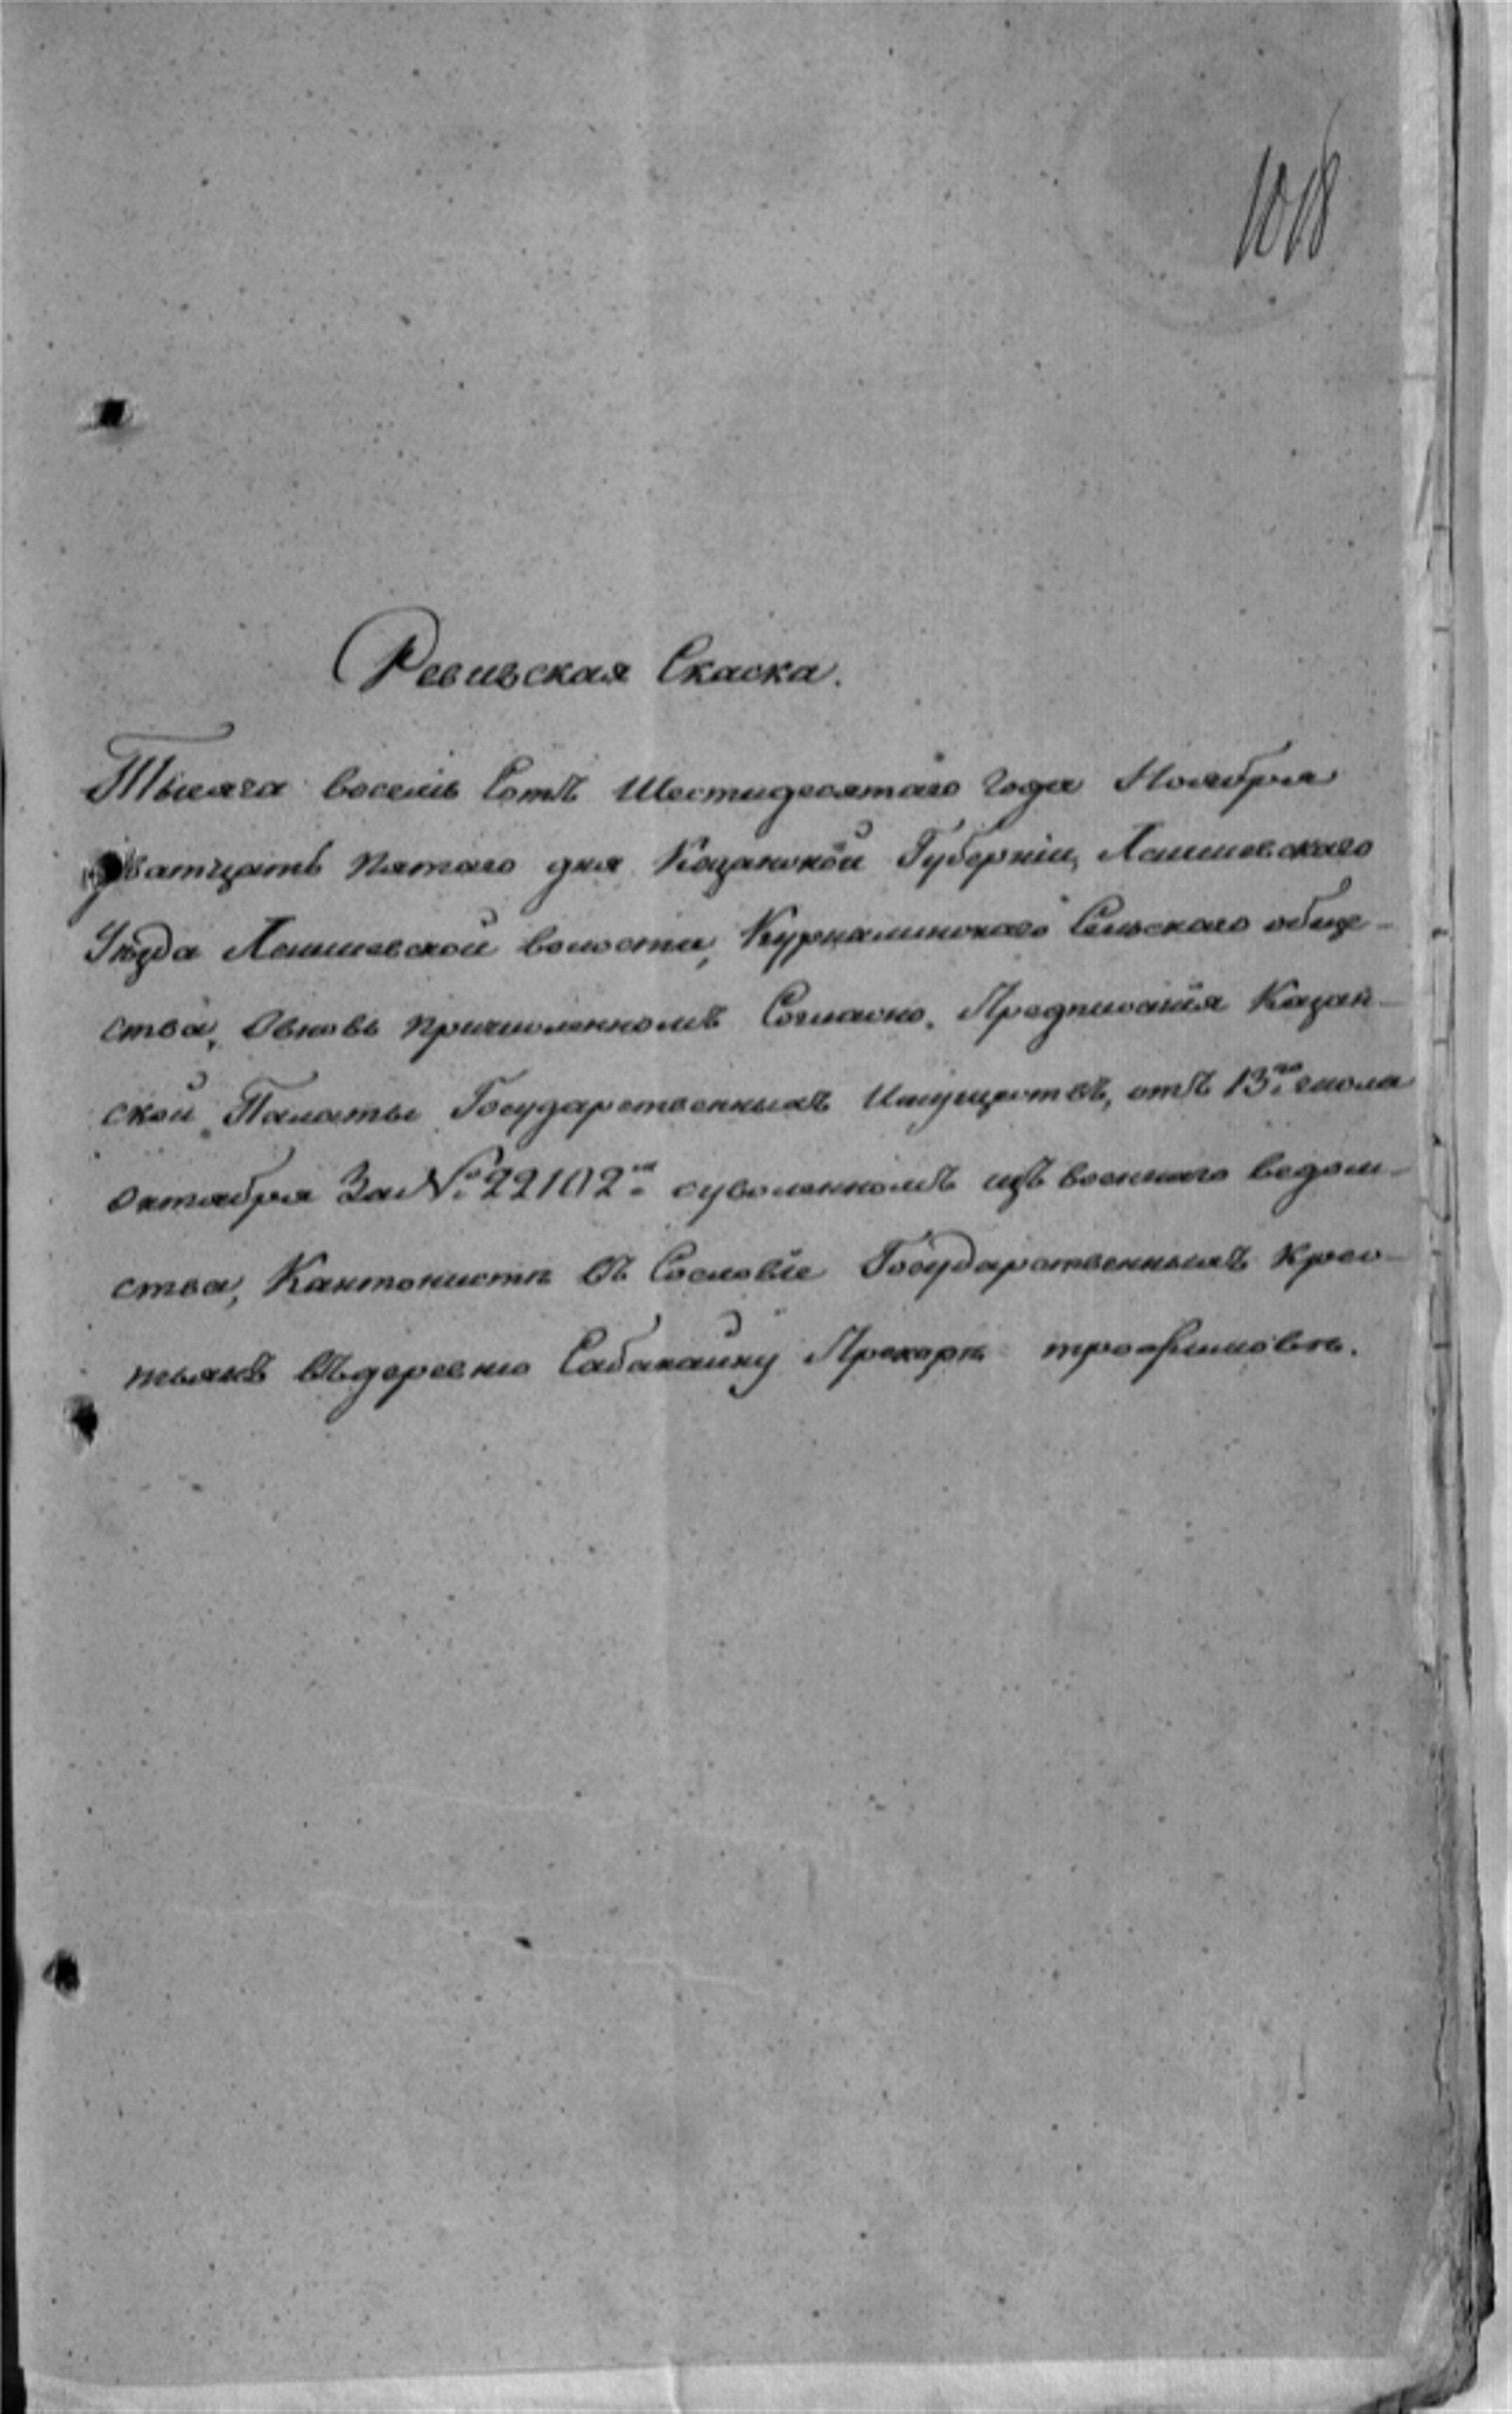 1018
Ревизская Скаска.
Тысяча восемь Сотъ Шестидесятаго года Ноября
Дватцать пятаго дня Казанской Губерніи, Лаишевскаго
Уѣзда Лаишевской волости, Курналинскаго Сельскаго обще-
ства, Овновь причисленномъ Согласно. Предписанія Казан-
ской Палаты Государственныхъ Имуществъ, отъ 13го числа
Октября За № 22102м оуволенномъ изъ военнаго ведом-
ства, Кантонистѣ въ Сословіе Государственныхъ крес-
тьянъ въ деревню Сабакаику Прокорѣ трофимовѣ.